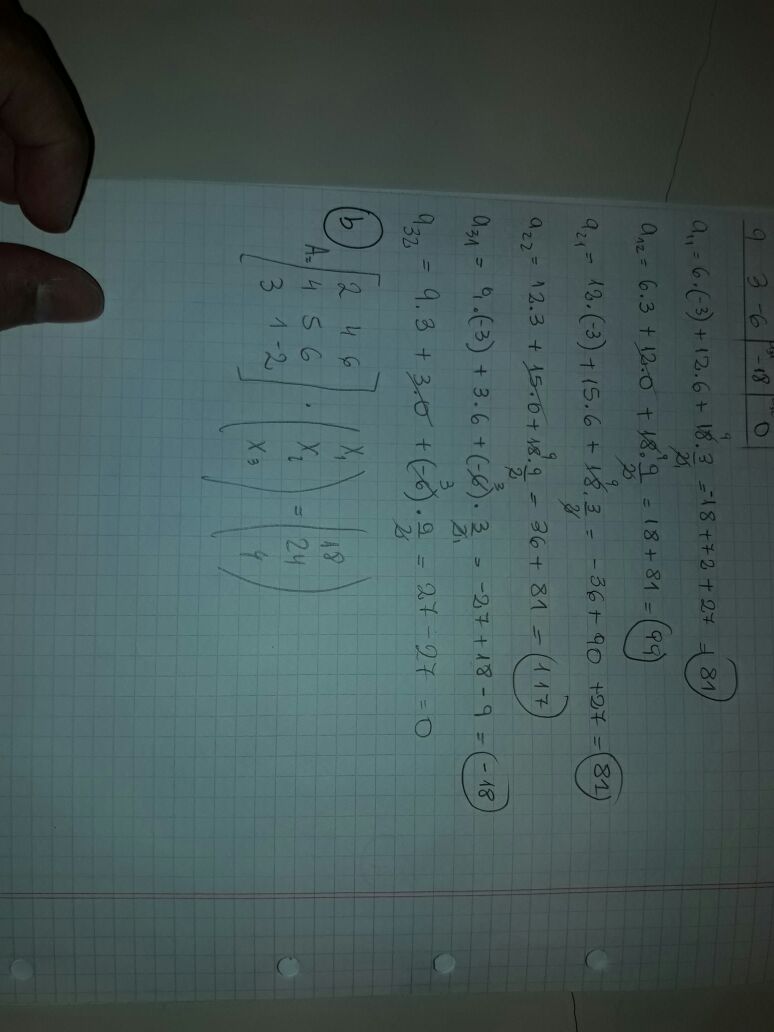 9 3 -6 -18 0
a11 = 6.(-3)+12.6 + 18.3/2 = -18+72+27 = 81
a12 = 6.3 + 12.0 + 18.9/2 = 18+81 = 99
a21 = 12.(-3)+15.6 + 18.3/2 = -36+90 +27= 81
a22 = 12.3 + 15.0+18.9/2 = 36+81 = 117
a31 = 9.(-3) + 3.6 +(-6).3/2 = -27+18-9 = -18
a32 = 9.3 + 3.0 + (-6).9/2 = 27-27 =0
b
2 4 6 x1 18
A= 4 5 6 . x2 = 24
3 1 -2 x3 4